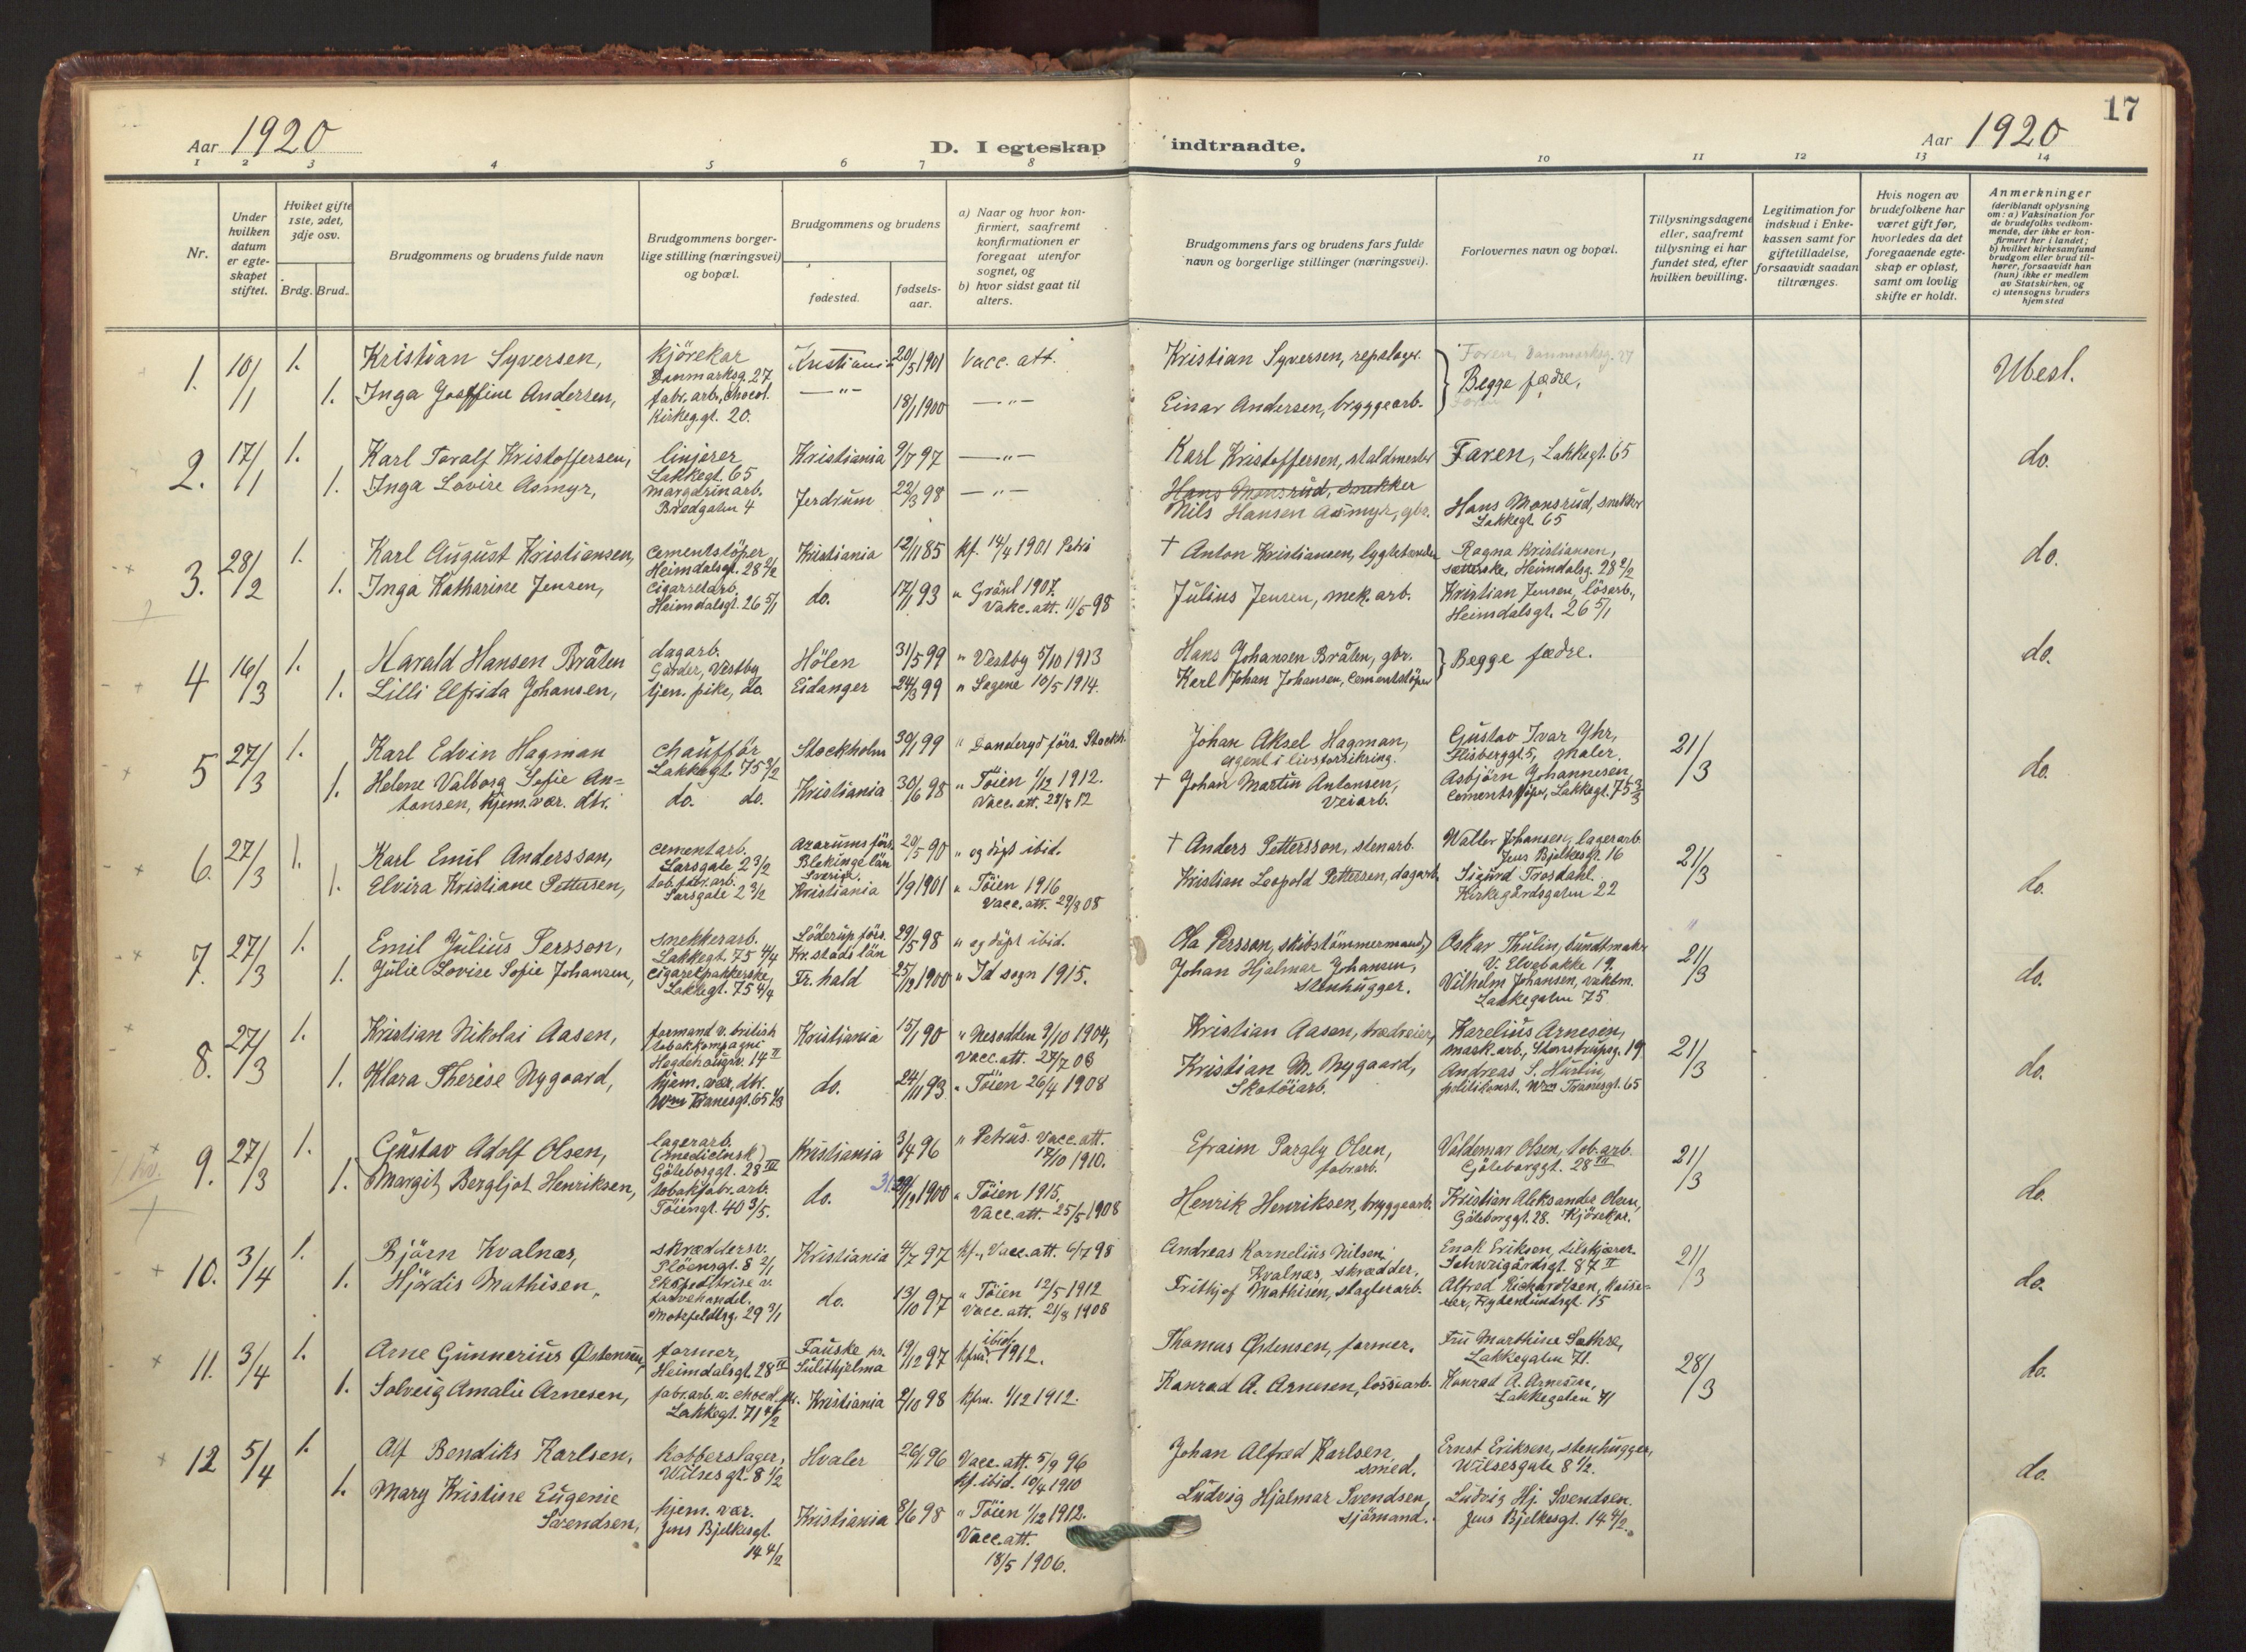 Aar 1920
D. I egteskap indtraadte.
Aar 1920
17
1 2 3 4 5 6 7 8 9 10 11 12 13 14
Nr.
Under hvilken datum er egteskapet stiftet.
Hviket gifte 1ste, 2det, 3dje osv.
Brdg. Brud.
Brudgommens og brudens fulde navn
Brudgommens borgerlige stilling (næringsvei) og bopæl.
Brudgommens og brudens
fødested.
fødselsaar.
a) Naar og hvor konfirmert, saafremt konfirmationen er foregaat utenfor sognet, og
b) hvor sidst gaat til alters.
Brudgommens fars og brudens fars fulde navn og borgerlige stillinger (næringsvei).
Forlovernes navn og bopæl.
Tillysningsdagene eller, saafremt tillysning ei har fundet sted, efter hvilken bevilling.
Legitimation for indskud i Enkekassen samt for giftetilladelse, forsaavidt saadan tiltrænges.
Hvis nogen av brudefolkene har været gift før, hvorledes da det foregaaende egteskap er opløst, samt om lovlig skifte er holdt.
Anmerkninger
(deriblandt oplysning om: a) Vaksination for de brudefolks vedkommende, der ikke er konfirmert her i landet; b) hvilket kirkesamfund brudgom eller brud tilhører, forsaavidt han (hun) ikke er medlem av Statskirken, og c) utensogns bruders hjemsted
1. 10/1 1. Kristian Syversen, kjörekar Danmarksg. 27 Kristiania 20/5 1901 Vacc. att. Kristian Syversen, repslager. Begge fædre. Ubesl.
1. Inga Josefine Andersen, fabr. arb., chocol. Kirkeg.gt. 20. —"— 18/1 1900 —"— Einar Andersen, bryggearb.
2. 17/1 1. Karl Toralf Kristoffersen, linjerer Lakkegt. 65 Kristiania 9/7 97 —"— Karl Kristoffersen, staldmester Faren, Lakkegt. 65 do.
1. Inga Lovise Asmyr, margarinarb. Bredgaten 4 Jerdrum 22/3 98 —"— Hans Monsrud, snekker
Nils Hansen Aasmyr, gbr. Hans Monsrud, snekker Lakkegt. 65
3. 28/2 1. Karl August Kristiansen, cementstöper Heimdalsgt. 28 2/2 Kristiania 12/11 85 kf. 14/4 1901 Petri † Anton Kristiansen, lygtetænder Ragna Kristiansen, Heimdalsg. 28 2/2 do.
1. Inga Katharine Jensen, cigarretarb. Heimdalsgt. 26 5/1 do. 17/1 93 " Grönl 1907. Vakc. att. 11/5 98 Julius Jensen, mek. arb. Kristian Jensen, lösarb., Heimdalsgt. 26 5/1
4 16/3 1. Harald Hansen Bråten dagarb. Gårder, Vestby Hölen 31/5 99 " Vestby 5/10 1913 Hans Johansen Bråten, gbr. Begge fædre. do.
1. Lilli Elfrida Johansen, tjen. pike, do. Eidanger 24/3 99 " Sagene 10/5 1914. Karl Johan Johansen, Cementstöper
5 27/3 1. Karl Edvin Hagman chaufför Lakkegt. 75 3/2 Stockholm 30/1 99 " Danderyd förs. Stockh. Johan Aksel Hagman, agent i livsforsikring. Gustav Ivar Yhr, Flisberggt. 5, maler. 21/3 do.
1. Helene Valborg Sofie Antonsen, hjem. vær. dtr. do. do. Kristiania 30/6 98 " Töien 1/12 1912. Vacc. att. 28/8 12 † Johan Martin Antonsen, Veiarb. Asbjörn Johannesen, Cementstöper, Lakkegt. 75 3/3
6. 27/3 1. Karl Emil Andersson, cementarb. Larsgate 2 3/2 Asarums förs. Blekinge län Sverige. 20/5 90 " og döpt ibid. † Anders Pettersson, stenarb. Walter Johansen, lagerarb. Jens Bjelkesgt. 16 21/3 do.
1. Elvira Kristiane Pettersen, tob. fabr. arb. Larsgate 2 3/2 Kristiania 1/9 1901 " Töien 1916 Vacc. att. 29/8 08 Kristian Leopold Pettersen, dagarb. Sigurd Trosdahl. Kirkegårdsgaten 22
7. 27/3 1. Emil Julius Persson, snekkerarb. Lakkegt. 75 4/4 Löderup förs. Kr. stads län 29/5 98 " og döpt ibid. Ola Persson, skibstömmermand, Oskar Thulin, bundtmaker V. Elvebakke 19. 21/3 do.
1. Julie Lovise Sofie Johansen, cigaretpakkerske, Lakkegt. 75 4/4 Fr. hald 25/12 1900 " Id sogn 1915. Johan Hjalmar Johansen, stenhugger. Vilhelm Johansen, Lakkegaten 75
8. 27/3 1. Kristian Nikolai Aasen, formand v. british tobakkompagni Hegdehaugsv. 14 II Kristiania 15/1 90 " Nesodden 9/10 1904, Vacc. att. 27/7 03 Kristian Aasen, Karelius Arnesen, mask. arb., Stenstrupsg. 19. 21/3 do.
1. Klara Therese Nygaard, hjem. vær. dtr. Wm Tranesgt. 65 1/3 do. 24/11 93 " Töien 26/4 1908 Kristian M. Nygaard, Skotöiarb. Andreas S. Hustin, politikonst. Wm Tranesgt. 65
9. 27/3 1. Gustav Adolf Olsen, lagerarb. (medicinsk) Göteborggt. 28 III Kristiania 3/4 96 " Petrus. Vacc. att. 17/10 1910. Efraim Olsen, fabr. arb. Valdemar Olsen, tob. arb. Göteborggt. 28 III 21/3 do.
1. Margit Bergljot Henriksen, tobakfabr. arb. Töiengt. 40 3/5. do. 1900 " Töien 1915. Vacc. att. 25/5 1908 Henrik Henriksen, bryggearb. Kristian Aleksander Olsen, Göteborggt. 28. Kjörekar.
10. 3/4 1. Björn Kvalnæs, skræddersv. Plöensgt. 8 2/1 Kristiania 4/7 97 kf., Vacc. att. 6/7 98 Andreas Kornelius Nilsen Kvalnæs, skrædder. Enok Eriksen, tilskjærer. Schweigårdsgt. 87 II 21/3 do.
1. Hjördis Mathisen, Ekspeditrise v. farvehandel. Motzfeldtsg. 29 3/1 do. 13/10 97 " Töien 12/5 1912 Vacc. att. 21/8 1908 Frithjof Mathisen, slagterarb. Alfred Rickardtsen, Rydenlundsgt. 15
11. 3/4 1. Arne Gunnerius Østensen, former, Heimdalsgt. 28 II Fauske pr. Sulithjelma 19/12 97 kfm. ibid. 1912. Thomas Østensen, former. Fru Marthine Sæthre, Lakkegaten 71. 28/3 do.
1. Solveig Amalie Arnesen, fabr. arb. v. chocol. Lakkegt. 71 4/2 Kristiania 2/10 98 kfm. 1/12 1912. Konrad A. Arnesen, lossearb. Konrad A. Arnesen, Lakkegaten 71
12 5/4 1. Alf Bendiks Karlsen, kobberslager, Wilsesgt. 8 1/2 Hvaler 26/1 96 Vacc. att. 5/9 96 kf. ibid. 10/4 1910 Johan Alfred Karlsen, smed. Ernst Eriksen, stenhugger, Wilsesgate 8 1/2. do.
1. Mary Kristine Eugenie Svendsen, hjem. vær. Jens Bjelkesgt. 14 4/2 Kristiania 8/6 98 " Töien 1/12 1912. Vacc. att. 18/5 1906. Ludvig Hjalmar Svendsen, sjömand. Ludvig Hj. Svendsen. Jens Bjelkesgt. 14 4/2.